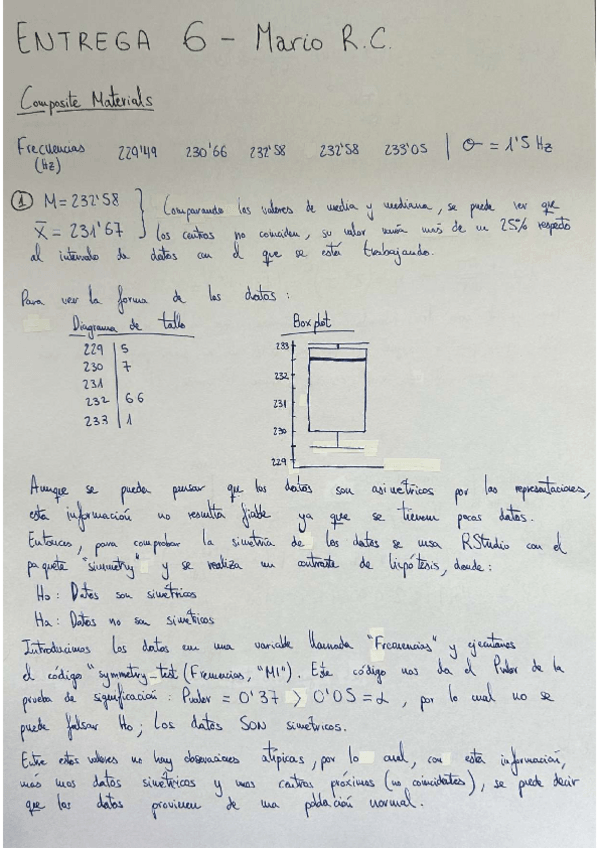 ENTREGA 6 - Mario R.C.
Composite Materials
Frecuencias (Hz) 229'49 230'66 232'58 232'58 233'05 | σ = 1'5 Hz
① M = 232'58
x̄ = 231'67
Comparando los valores de media y mediana, se puede ver que
los centros no coinciden, su valor varía más de un 25% respecto
al intervalo de datos con el que se está trabajando.
Para ver la forma de los datos:
Diagrama de tallo
229 | 5
230 | 7
231 |
232 | 6 6
233 | 1
Box plot
233
232
231
230
229
Aunque se pueda pensar que los datos son asimétricos por las representaciones,
esta información no resulta fiable ya que se tienen pocos datos.
Entonces, para comprobar la simetría de los datos se usa RStudio con el
paquete "simmetry" y se realiza un contraste de hipótesis, donde:
Ho: Datos son simétricos
Ha: Datos no son simétricos
Introducimos los datos en una variable llamada "Frecuencias" y ejecutamos
el código "symmetry_test(Frecuencias, "MI"). Este código nos da el Pvalor de la
prueba de significación: Pvalor = 0'37 > 0'05 = α, por lo cual no se
puede falsar Ho; Los datos SON simétricos.
Entre estos valores no hay observaciones atípicas, por lo cual, con esta información,
más unos datos simétricos y unos centros próximos (no coincidentes), se puede decir
que los datos provienen de una población normal.